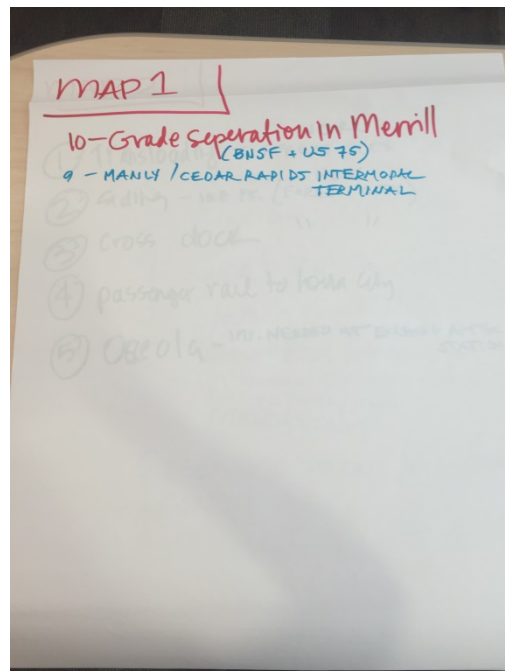 MAP 1
10-Grade seperation in Merrill
(BNSF + US 75)
9 - MANLY / CEDAR RAPIDS INTERMODAL
TERMINAL
① Transloading
②
③ Cross dock
④ passenger rail to Iowa City
⑤ Osceola -